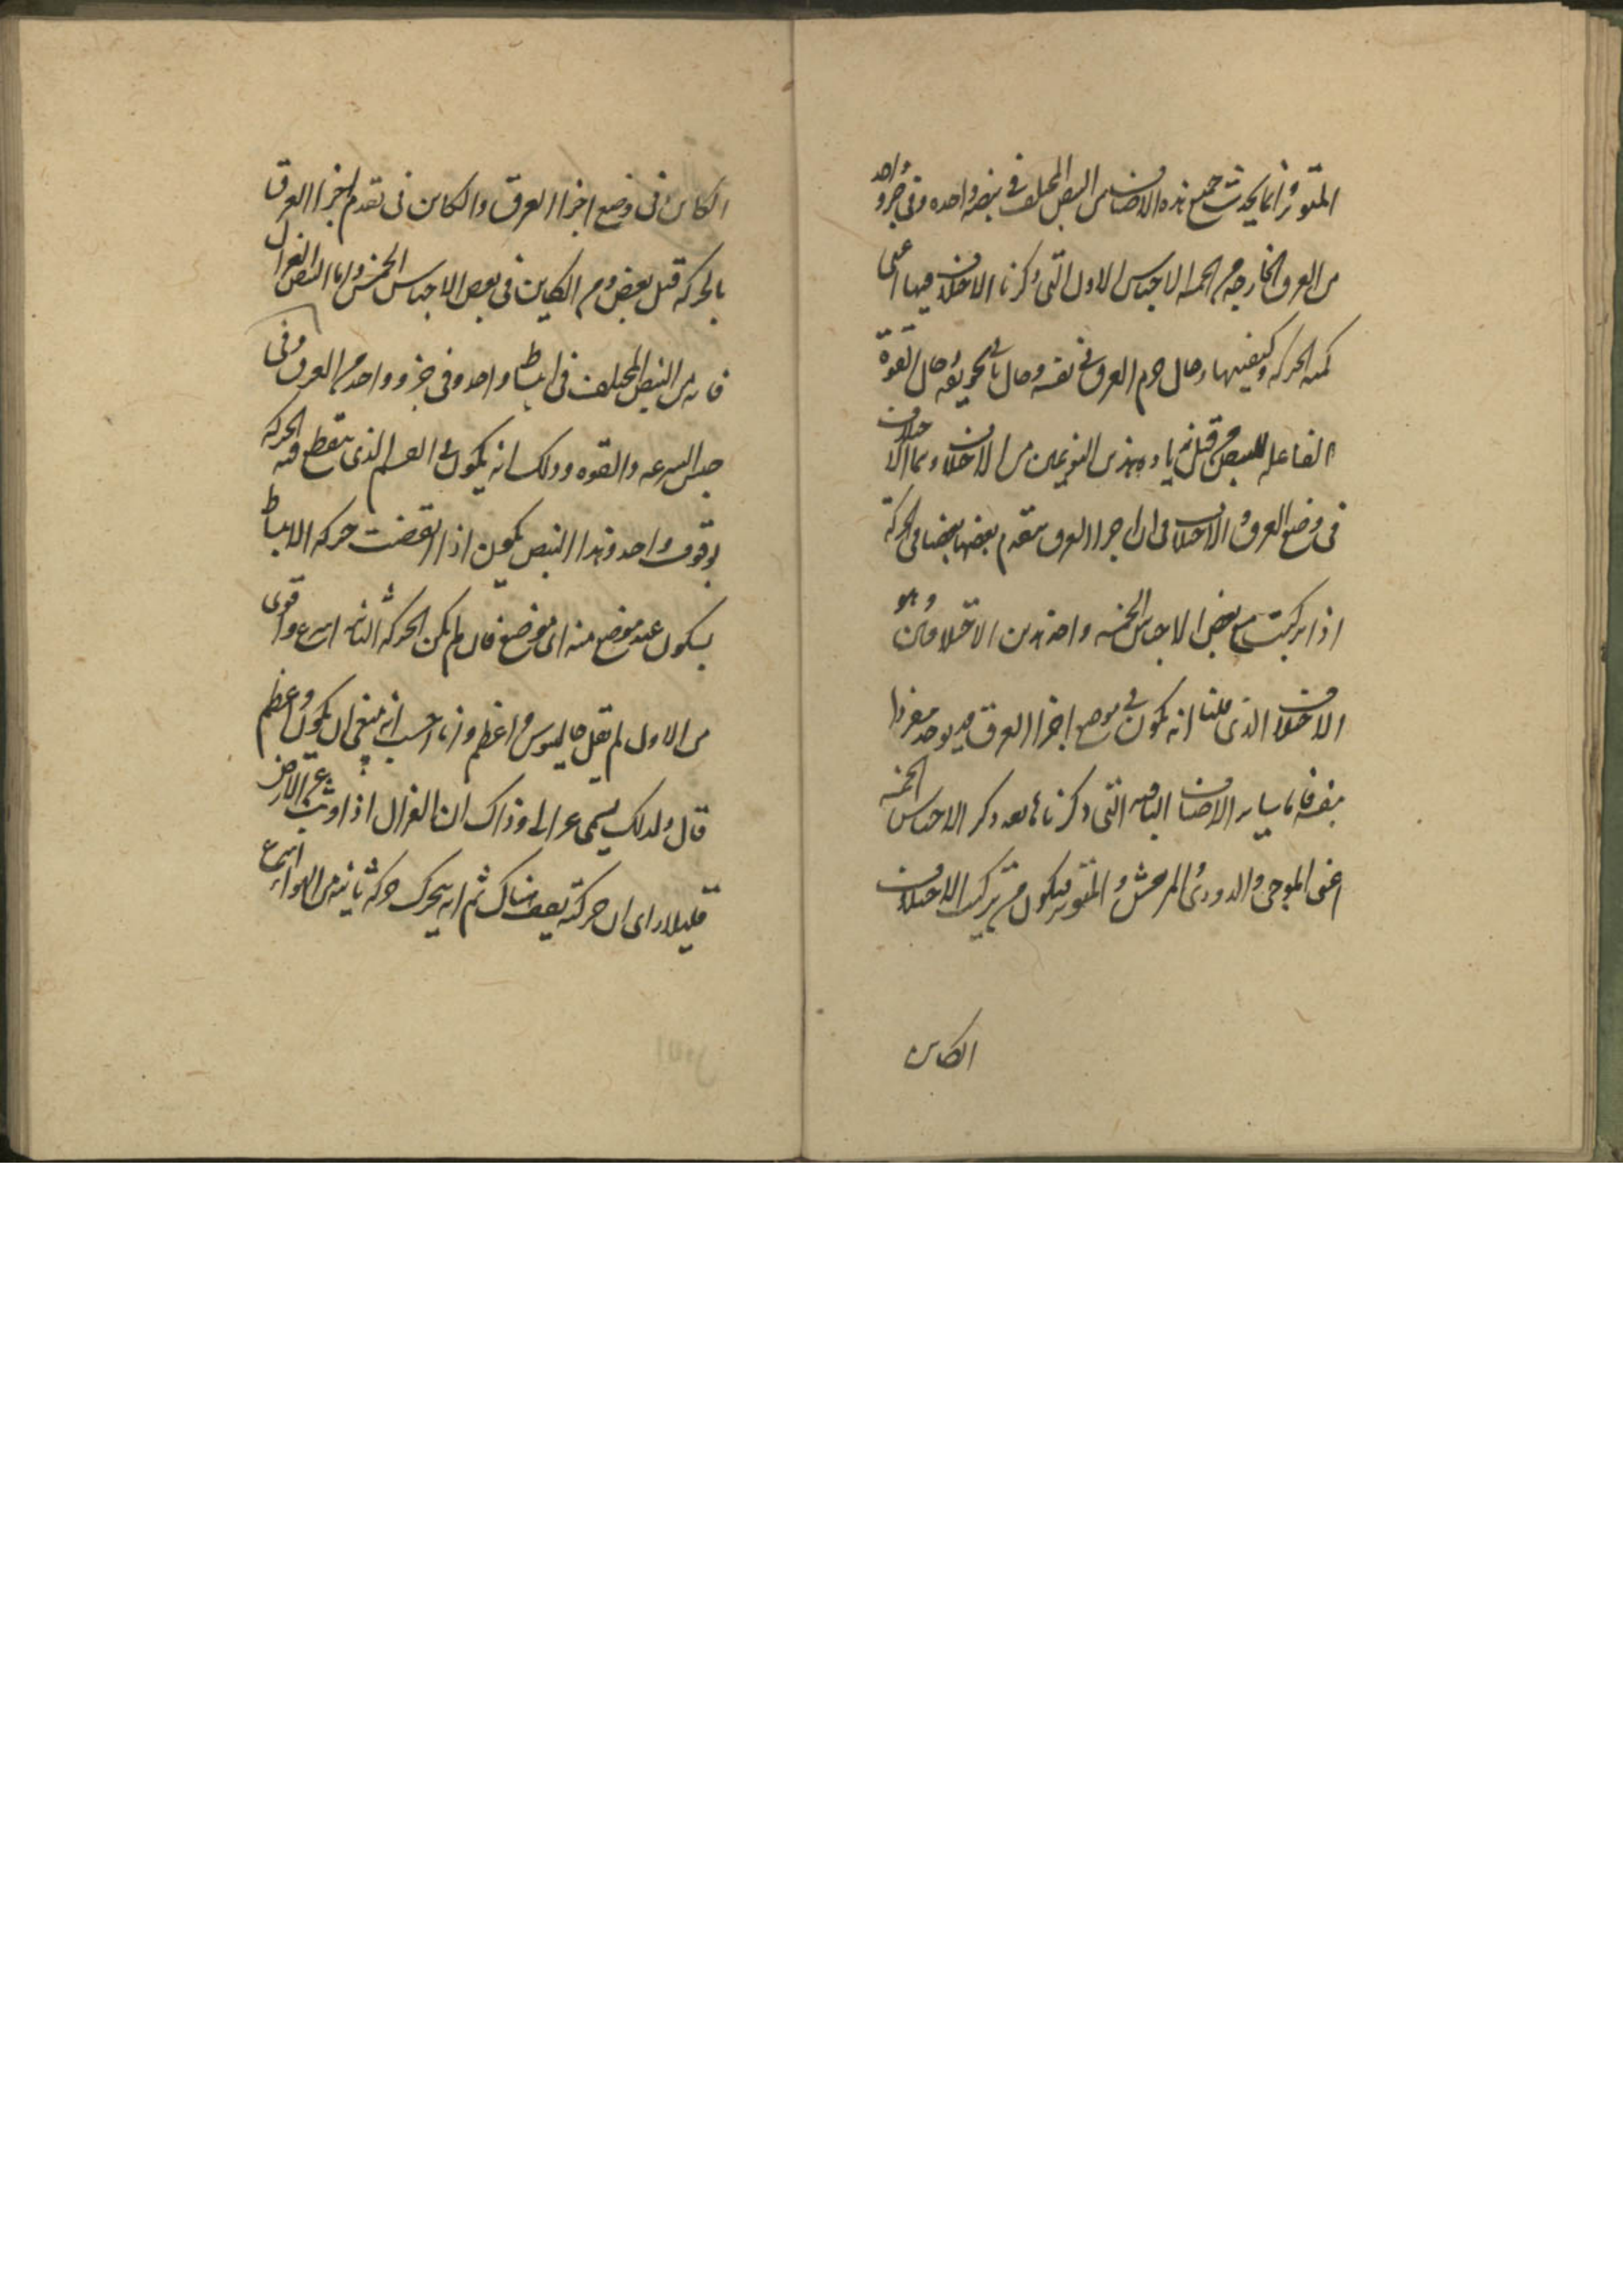 المتوتر وانما يحدث جميع هذه الاصناف من النبض المختلف فى نبضه واحده وفى جزو واحد
من العرق الخارجه من الخمسه الاجناس الاول التى ذكرنا الاختلاف فيها اعنى
كميه الحركه وكيفيتها وحال جرم العرق فى نفسه وحال ما فى تجويفه وحال القوة
الفاعله للنبض من قبل زياده هذين النوعين من الاختلاف وهما الاختلاف
فى وضع العرق والاختلاف فى ان اجزا العرق يتقدم بعضها بعضا فى الحركة
اذا تركبت مع بعض الاجناس الخمسه واحد هذين الاختلافين وهو
الاختلاف الذى قلنا انه يكون فى موضع اجزا العرق قد يوجد مفردا
بنفسه فاما ساير الاصناف الباقيه التى ذكرناها بعد ذكر الاجناس الخمسه
اعنى الموجى والدودى والمرتعش والمتوتر فيكون من تركيب الاختلاف
الكاين
الكاين فى وضع اجزا العرق والكاين فى تقدم اجزا العرق
بالحركه قبل بعض ومن الكاين فى بعض الاجناس الخمس واما النبض الغزالى
فانه من النبض المختلف فى انبساط واحد وفى جزو واحد من العرق وفى
جنس السرعه والقوه وذلك انه يكون فى القسم الذى ينقطع فيه الحركه
بوقوف واحد وهذا النبض يكون اذا انقضت حركه الانبساط
بسكون عند موضع منه اى موضع كان ثم يكن الحركه الثانيه اسرع واقوى
من الاول لم يقل جالينوس واعظم وانا احسب انه ينبغى ان يكون واعظم
قال ولذلك يسمى غزالى وذاك ان الغزال اذا وثبت عن الارض
قليلا راى ان حركته يقف هناك ثم انه يتحرك حركه ثانيه من الهواء اسرع